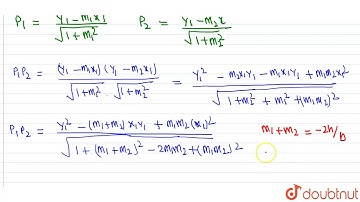 P₁ = (y₁ - m₁x₁)/√(1+m₁²) P₂ = (y₁ - m₂x)/√(1+m₂²)
P₁P₂ = (y₁ - m₁x₁)(y₁ - m₂x₁)/(√(1+m₁²) · √(1+m₂²)) = (y₁² - m₂x₁y₁ - m₁x₁y₁ + m₁m₂x₁²)/√(1+m₂² + m₁² + (m₁m₂)²)
P₁P₂ = (y₁² - (m₁+m₂)x₁y₁ + m₁m₂(x₁)²)/√(1+(m₁+m₂)² - 2m₁m₂ + (m₁m₂)²) m₁+m₂ = -2h/b
doubtnut